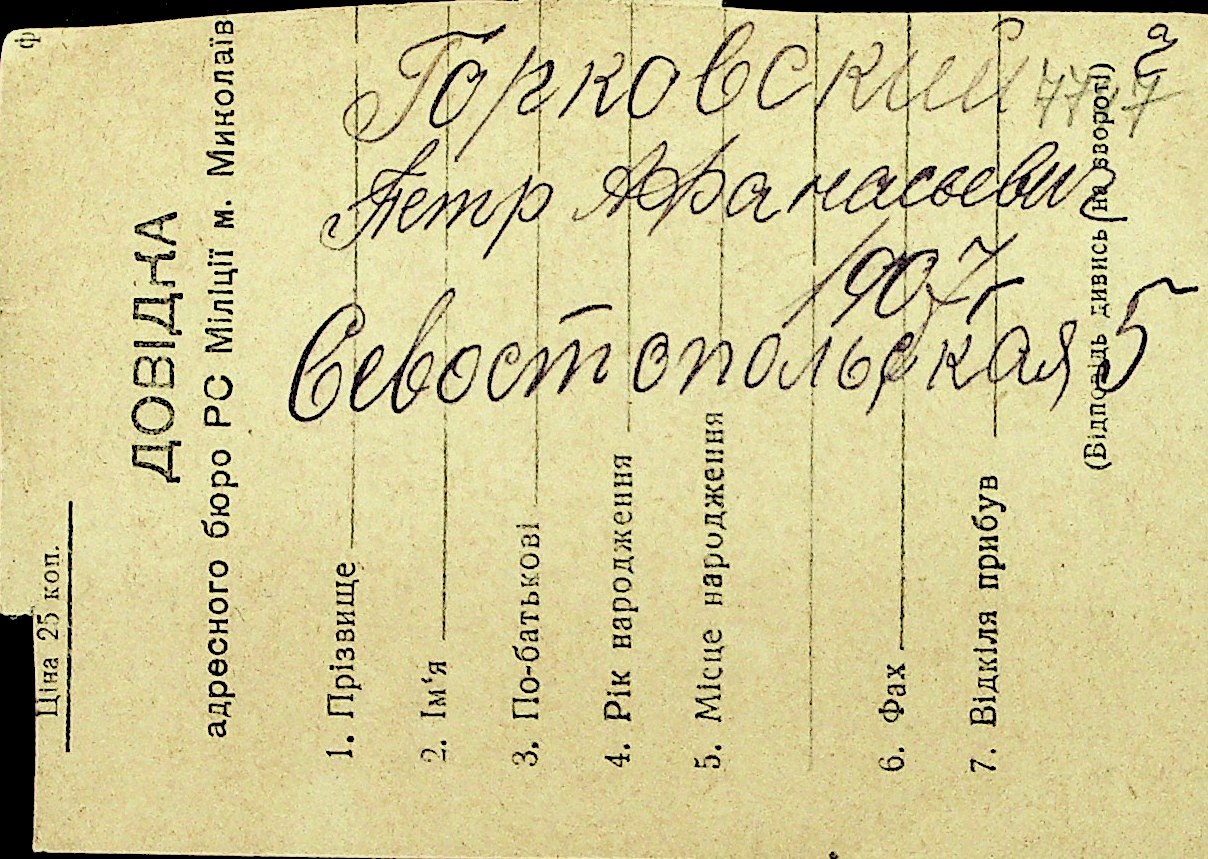 Ціна 25 коп.
ф
ДОВІДКА
адресного бюро РС Міліції м. Миколаїв
1. Прізвище
2. Ім'я
3. По-батькові
4. Рік народження
5. Місце народження
6. Фах
7. Відкіля прибув
(Відповідь дивись на звороті)
Горковский
Петр Афанасьевич
1907 г
Севостопольская 5